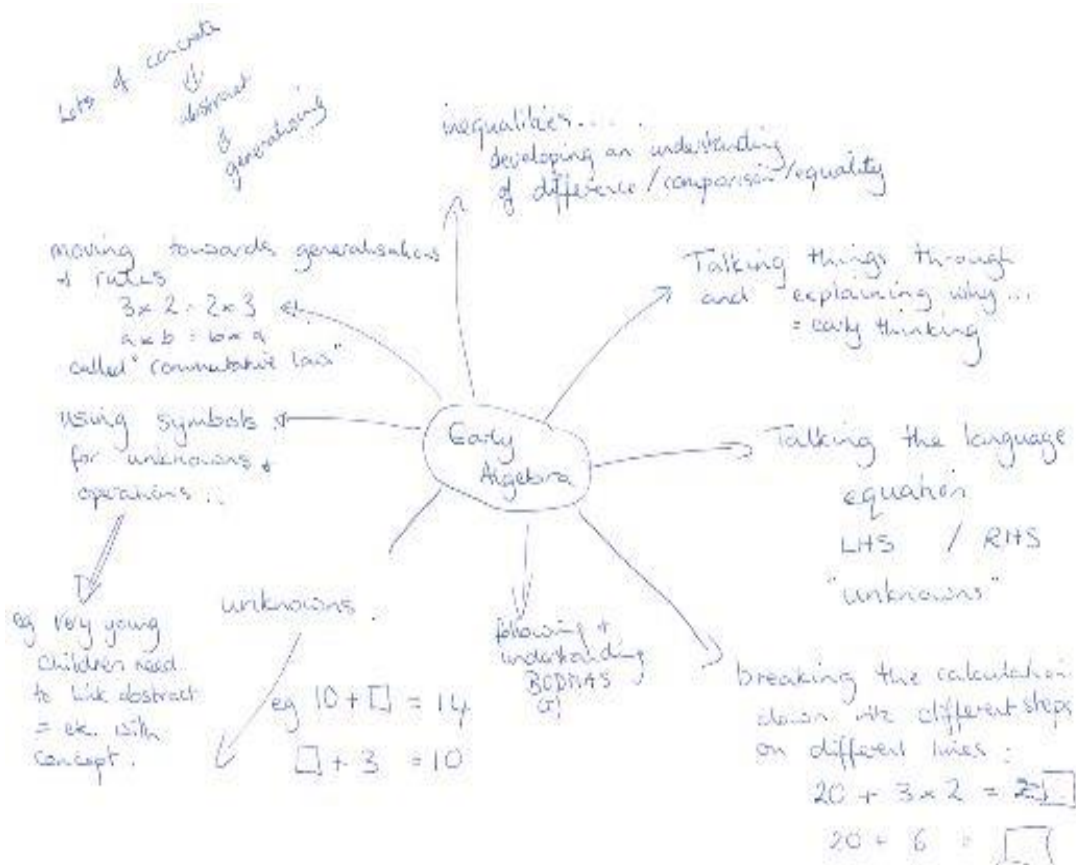 Lots of concrete
⇓
abstract
⇓
generalising
inequalities.....
developing an understanding
of difference/comparison/equality
moving towards generalisations
+ rules
3 × 2 = 2 × 3
a × b = b × a
called "commutative law"
Talking things through
and explaining why...
= early thinking
using symbols
for unknowns +
operations...
Early
Algebra
Talking the language
equation
LHS / RHS
"unknowns"
eg very young
children need
to link abstract
= etc. with
concept.
unknowns
eg 10 + □ = 14
□ + 3 = 10
following +
understanding
BODMAS
breaking the calculation
down into different steps
on different lines:
20 + 3 × 2 = □
20 + 6 = □